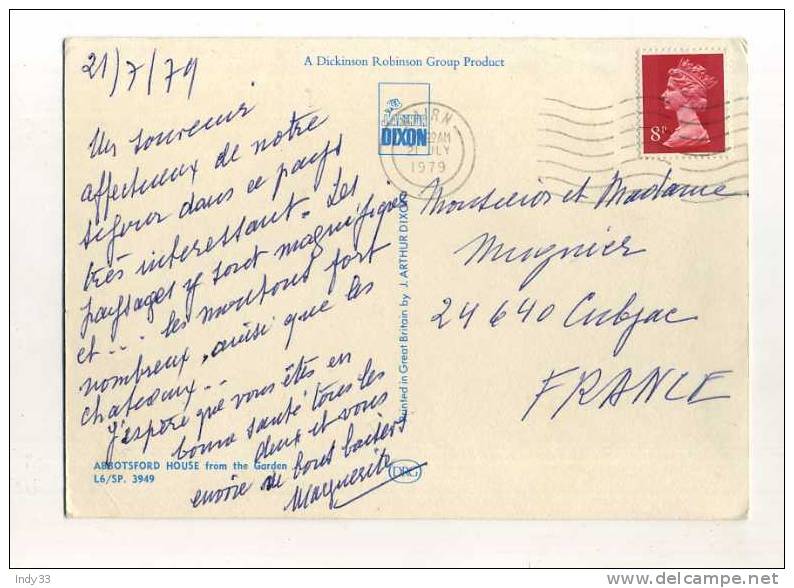 21/7/79
A Dickinson Robinson Group Product
J. ARTHUR
DIXON
NAIRN
AM
21 JLY
1979
8P
Un souvenir
affectueux de notre
séjour dans ce pays
très intéressant. Les
paysages y sont magnifiques
et ... les moutons fort
nombreux, ainsi que les
chateaux..
J'espère que vous êtes en
bonne santé tous les
deux et vous
envoie de bons baisers
Marguerite
Printed in Great Britain by J. ARTHUR DIXON
Monsieur et Madame
Mugnier
24640 Cubjac
FRANCE
ABBOTSFORD HOUSE from the Garden
L6/SP. 3949
DRG
Indy33
delcampe.net